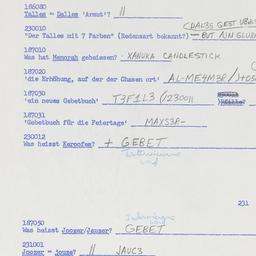 186080
Tallen = Dalles 'Armut'? //
230010
"Der Talles mit 7 Farben" (Redensart bekannt?) — BUT AIN
187010
Was hat Menorah geheissen? XANUKA CANDLESTICK
187020
'die Erhöhung, auf der der Chasen ort' AL-ME4M3R/
187030
'ein neues Gebetbuch' T3F1L3 (/230011
187031
'Gebetbuch für die Feiertage' MAXS3R-
230012
Was heisst Keroofen? + GEBET
231
187050
Was heisst Joozer/Jauzer? GEBET
231001
Joozer = jouze? // JAUC3